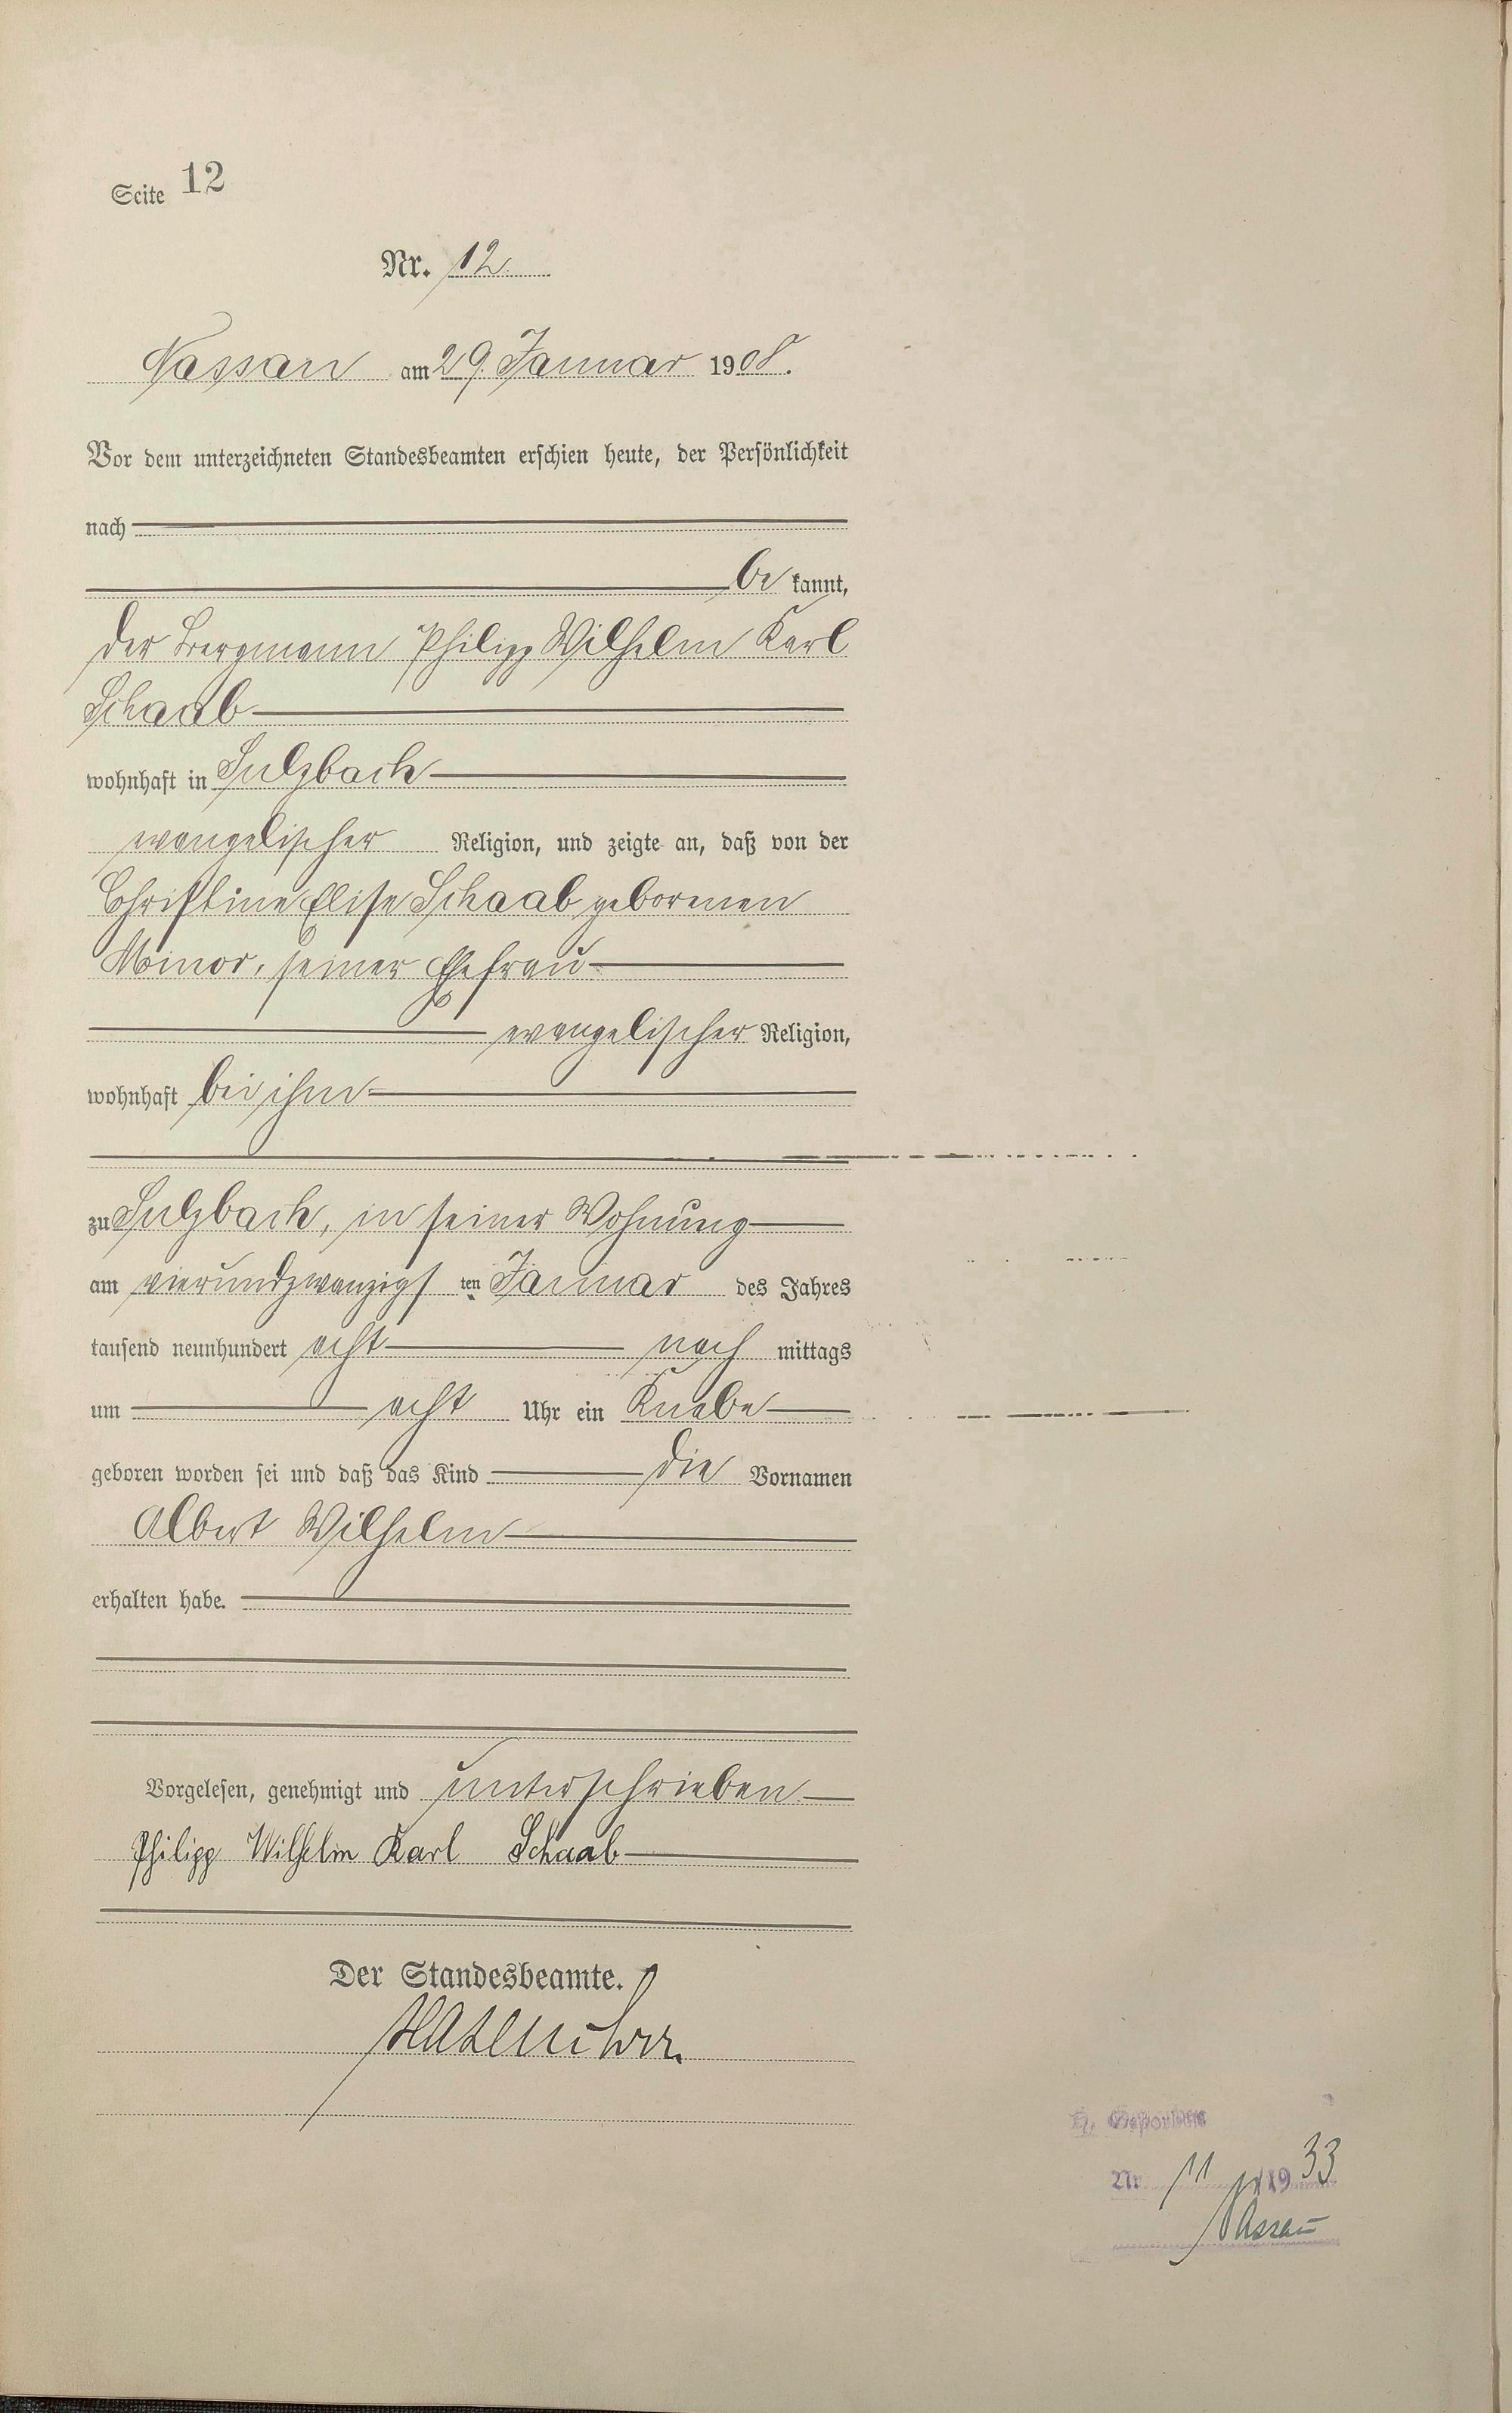 Seite 12
Nr. 12.
Nassau am 29. Januar 1908.
Vor dem unterzeichneten Standesbeamten erschien heute, der Persönlichkeit
nach
be kannt,
der Bergmann Philipp Wilhelm Karl
Schaab
wohnhaft in Sulzbach
evangelischer Religion, und zeigte an, daß von der
Christine Elise Schaab geborenen
Minor, seiner Ehefrau
evangelischer Religion,
wohnhaft bei ihm
zu Sulzbach, in seiner Wohnung
am vierundzwanzigs ten Januar des Jahres
tausend neunhundert acht nach mittags
um acht Uhr ein Knabe
geboren worden sei und daß das Kind die Vornamen
Albert Wilhelm
erhalten habe.
Vorgelesen, genehmigt und unterschrieben.
Philipp Wilhelm Karl Schaab
Der Standesbeamte.
Nr. 11 1933
Nassau